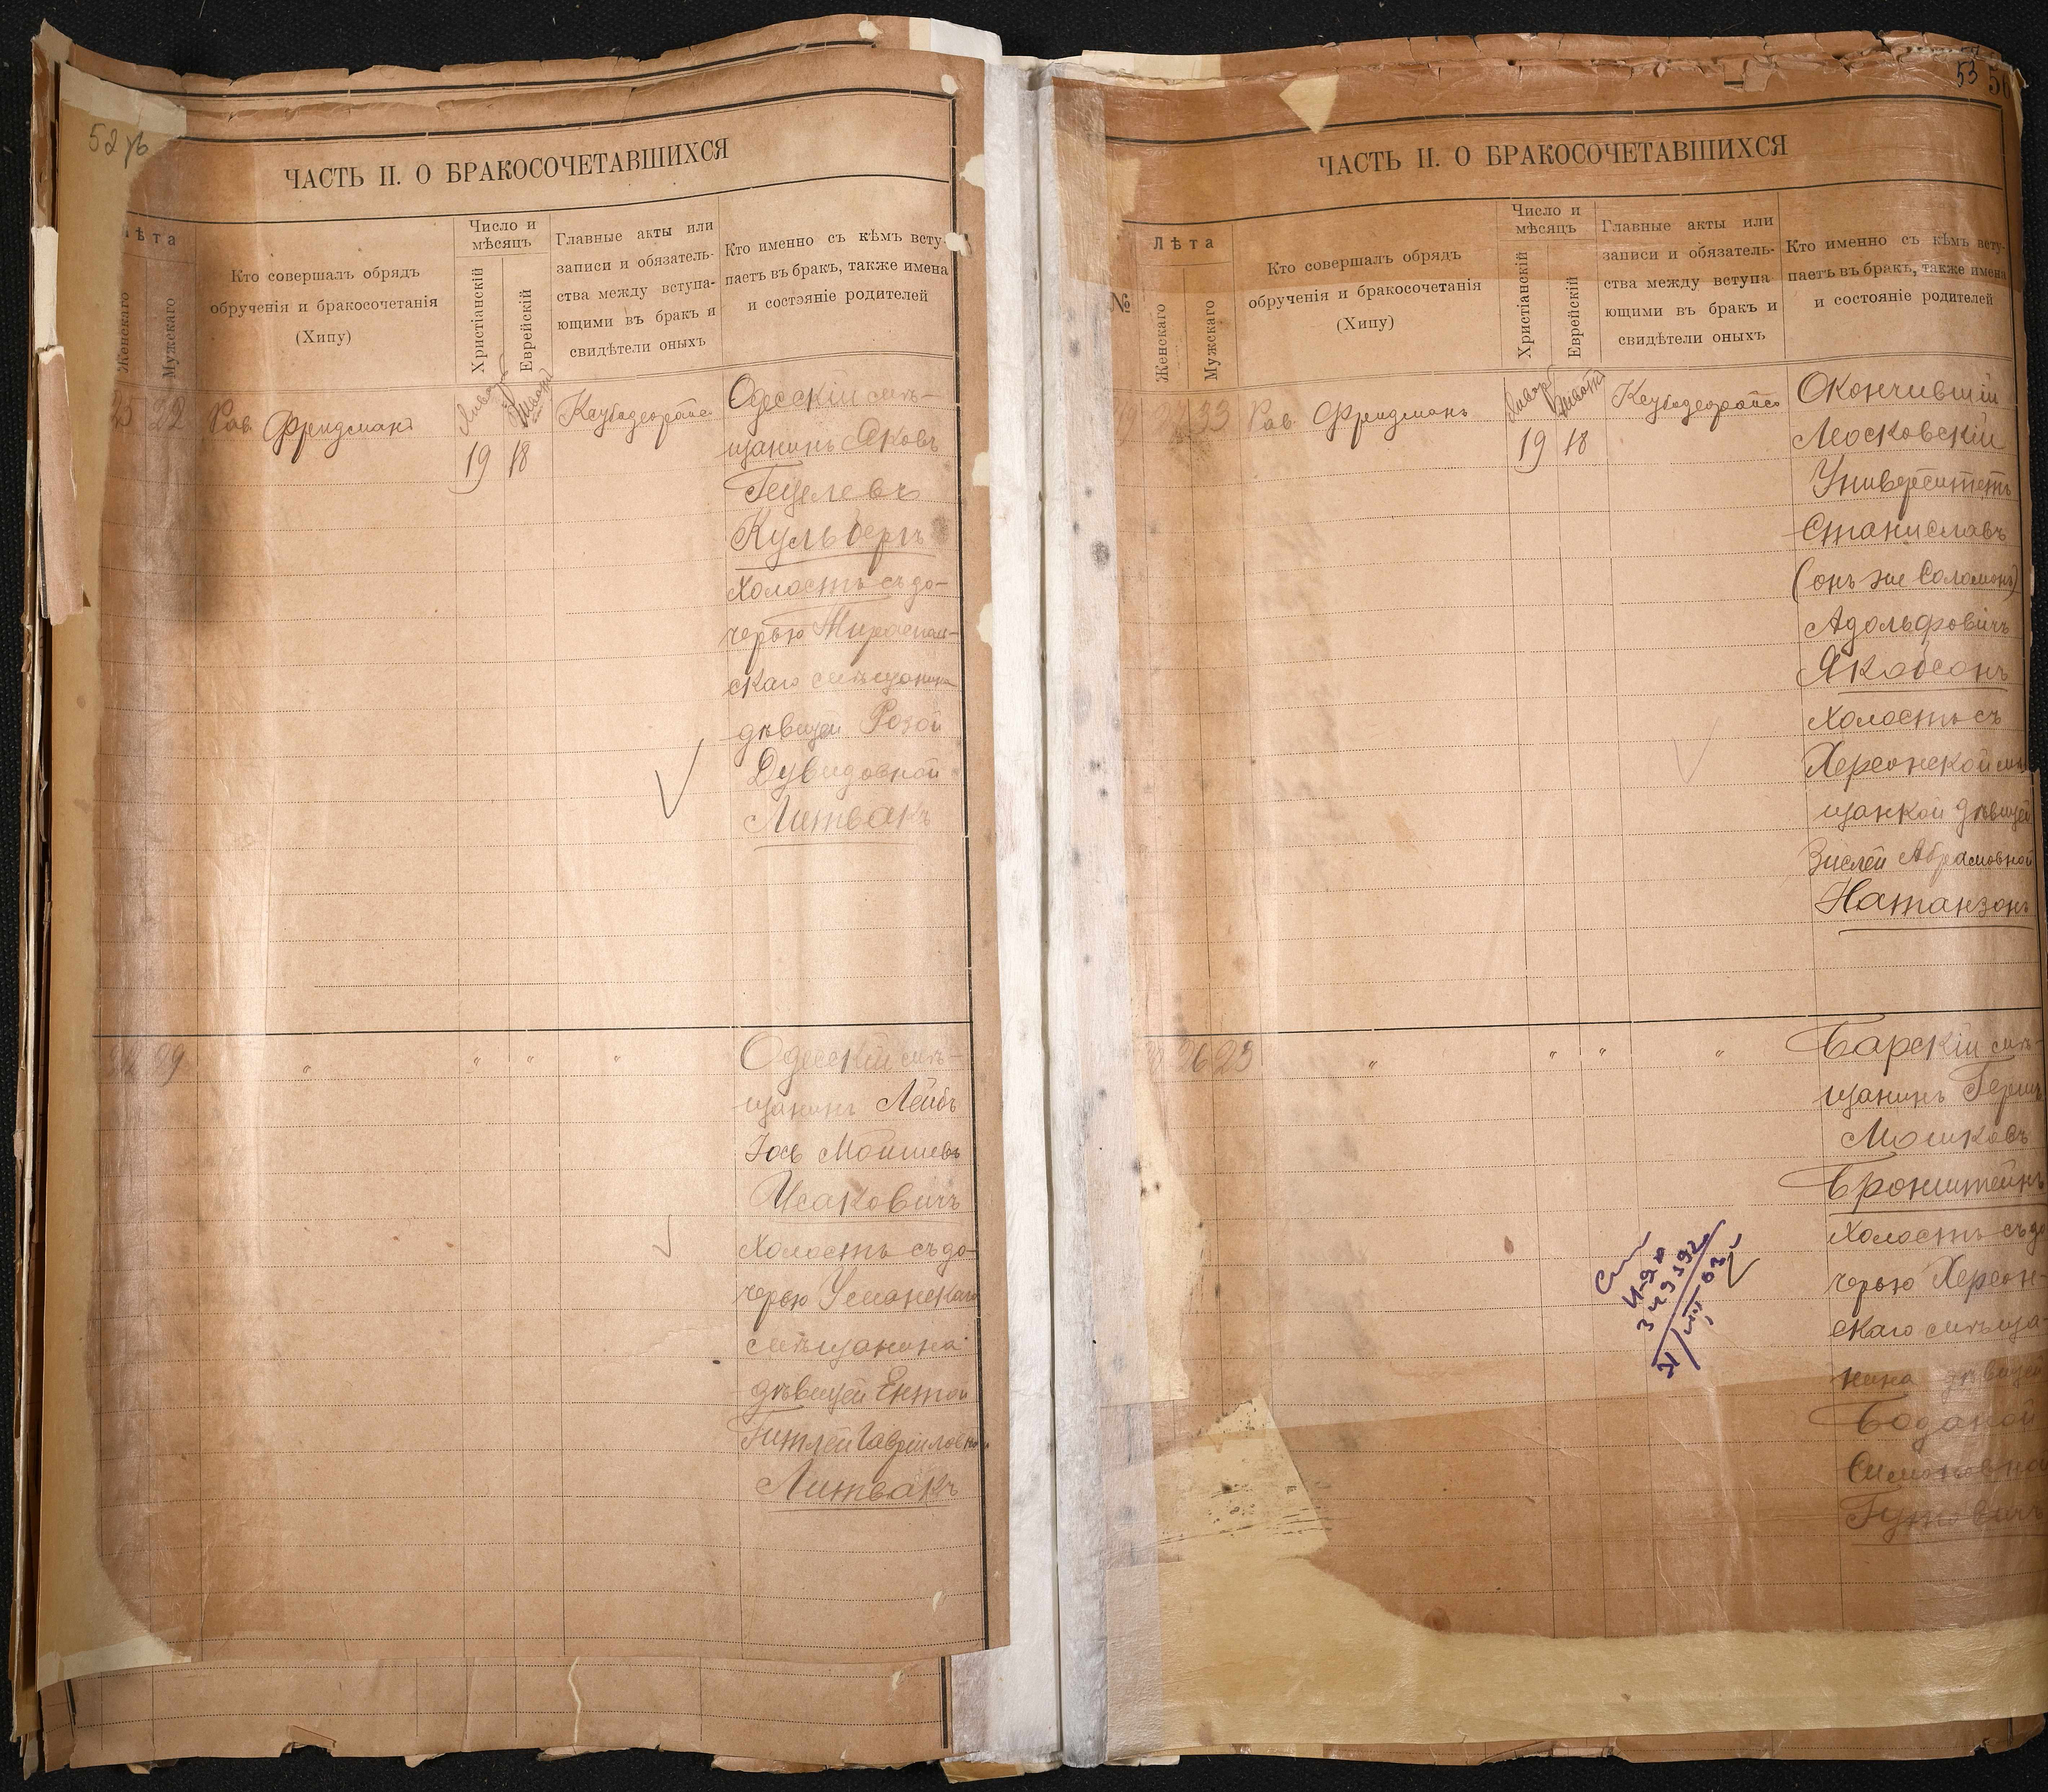 52 об
ЧАСТЬ II. О БРАКОСОЧЕТАВШИХСЯ
Лѣта
Женскаго
Мужскаго
Кто совершалъ обрядъ
обрученія и бракосочетанія
(Хипу)
Число и
мѣсяцъ
Христіанскій
Еврейскій
Главные акты или
записи и обязатель-
ства между вступа-
ющими въ бракъ и
свидѣтели оныхъ
Кто именно съ кѣмъ всту-
паетъ въ бракъ, также имена
и состояніе родителей
25 22 Рав. Фридманъ
19 18
Одесскій мѣ-
щанинъ Яковъ
Гецелевъ
Кульбергъ
холостъ съ до-
черью Тираспол-
скаго мѣщанина
дѣвицей Розой
Дувидовной
Литвакъ
29 " " " "
Одесскій мѣ-
щанинъ Лейбъ
Іось Мошковъ
Исаковичъ
холостъ съ до-
черью Уманскаго
мѣщанина
дѣвицей Ентой
Гитлей Гавриловной
Литвакъ
53
ЧАСТЬ II. О БРАКОСОЧЕТАВШИХСЯ
№
Лѣта
Женскаго
Мужскаго
Кто совершалъ обрядъ
обрученія и бракосочетанія
(Хипу)
Число и
мѣсяцъ
Христіанскій
Еврейскій
Главные акты или
записи и обязатель-
ства между вступа-
ющими въ бракъ и
свидѣтели оныхъ
Кто именно съ кѣмъ всту-
паетъ въ бракъ, также имена
и состояніе родителей
33 Рав. Фридманъ
19 18
Окончившій
Московскій
Университетъ
Станиславъ
(онъ же Соломонъ)
Адольфовичъ
Якобсонъ
холостъ съ
Херсонской мѣ-
щанкой дѣвицей
Зислей Абрамовной
Натанзонъ
26 25 " " " "
Барскій мѣ-
щанинъ Гершъ
Мошковъ
Бронштейнъ
холостъ съ до-
черью Херсон-
скаго мѣща-
нина дѣвицей
Богданой
Симоновной
Гутовичъ